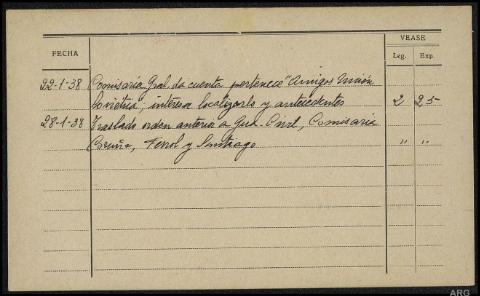 FECHA
VEASE
Leg. Exp.
22-1-38 Comisaria Gral. da cuenta pertenece "Amigos Unión
Soviética, interesa localizarlo y antecedentes 2 25
28-1-38 Traslado orden anterior a Gua. Civil, Comisaria
Coruña, Ferrol y Santiago " "
ARG